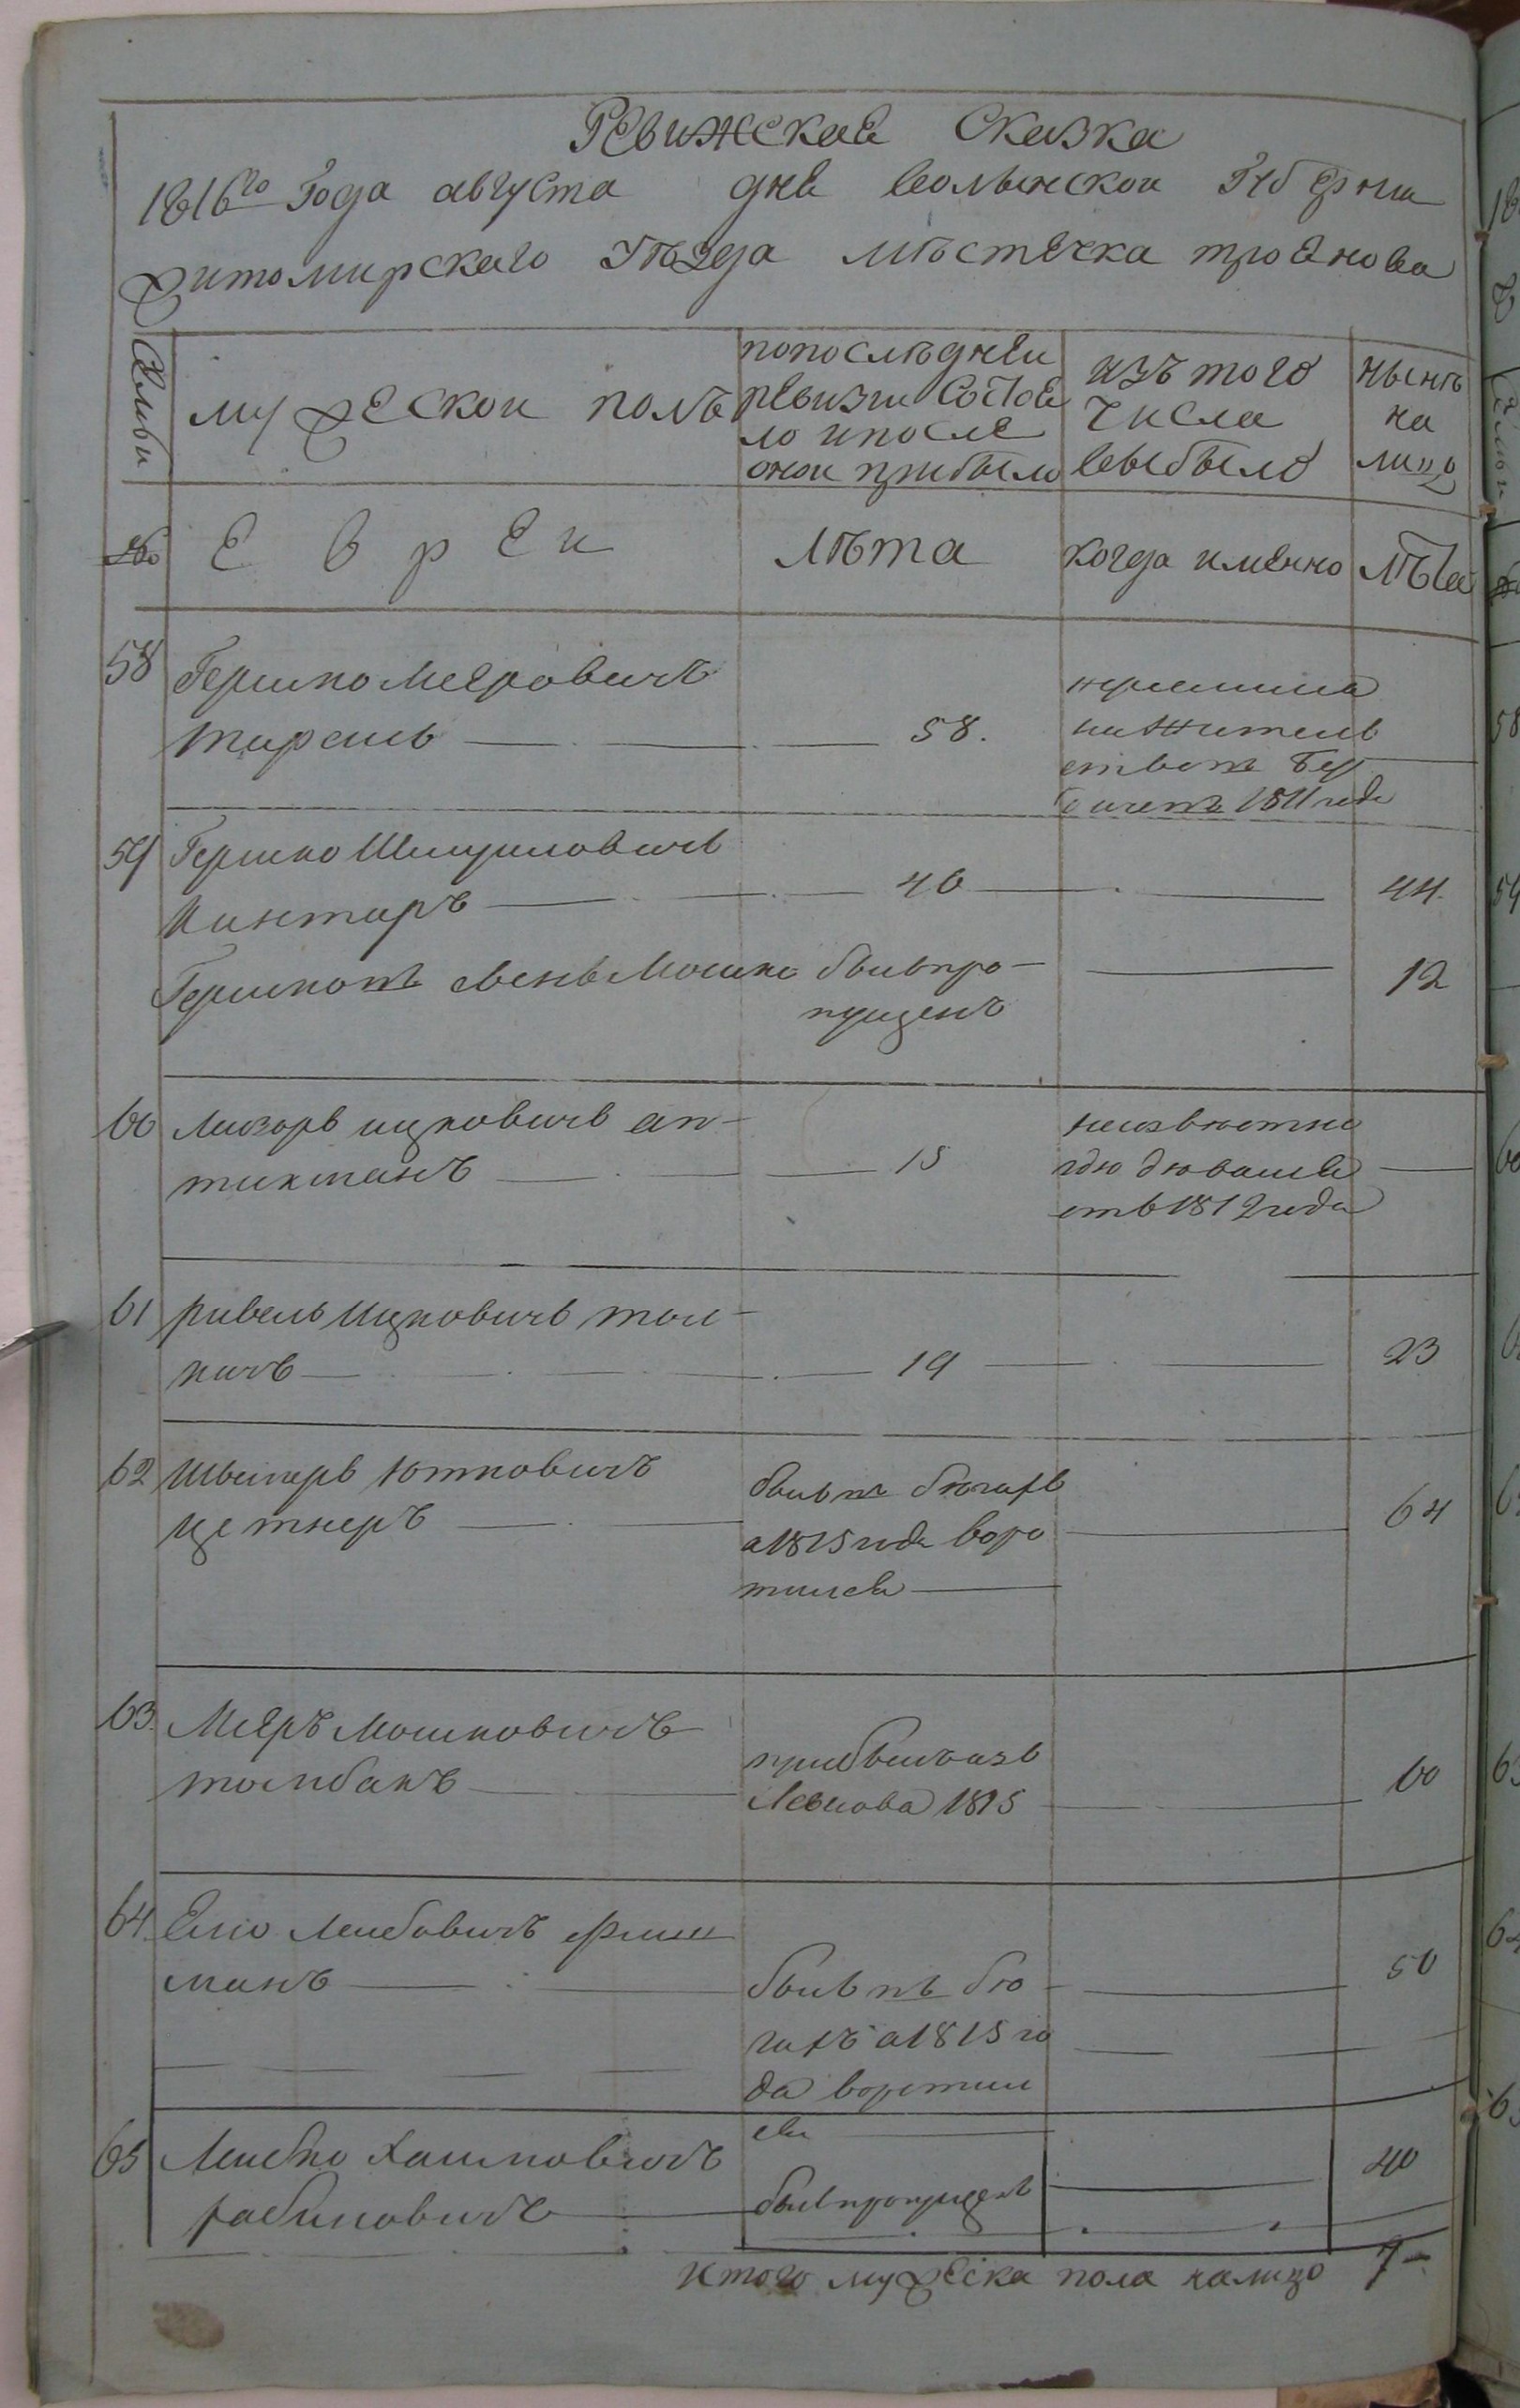 Ревижская Сказка
1816го Года августа дня волынской Губернии
житомирского Уѣзда мѣстечка троянова
Семьи
мужеской полъ
попослѣдней
ревизии Состоя
ло ипосле
оной прибыло
изъ того
числа
выбыло
нынѣ
на
лицо
№
Евреи
Лѣта
когда именно
Лѣта
58
Гершко Меяровичъ
58.
на жителъ
ство въ Бер
1811 года
59
Гершко Шмуиловичъ
Кантаръ
40
44
Гершкотъ сынъ Мошко
былъ про-
пущенъ
12
60
Лизоръ ицковичъ ап-
тикманъ
15
неизвѣстно
где девался
отъ 1812 года
61
Ицковичъ тол-
качъ
19
23
62
Ютковичъ
цетнеръ
былъ въ бегахъ
а 1815 года воро
тился
64
63.
Меяръ Мошковичъ
томбакъ
прибылъ изъ
Левкова 1815
60
64.
Елю Леибовичъ Фиш
манъ
былъ въ бе
гахъ а 1815 го
да воротил
ся
50
65
Леибко Хаимовичъ
рабиновичъ
былъ пропущенъ
40
Итого мужеска пола налицо 7